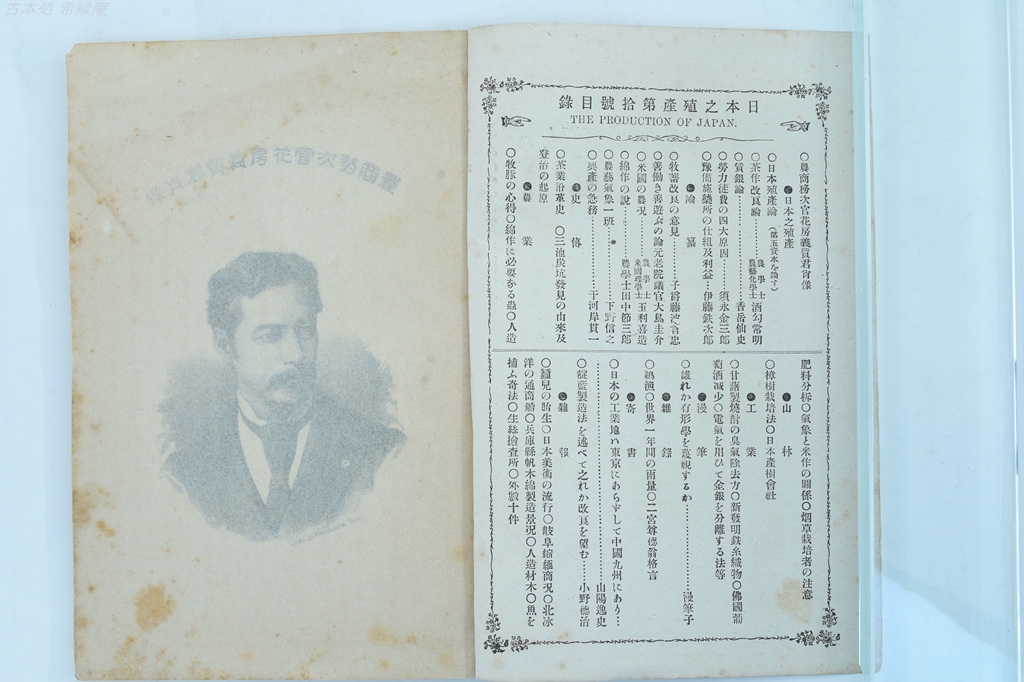 古本処 希縁庵
農商務次官花房義質君肖像
日本之殖產第拾號目錄
THE PRODUCTION OF JAPAN.
○農商務次官花房義質君肖像
●日本之殖產
○日本殖產論(第五資本を論す)
○茶作改良論…農學士 農藝化學士 酒勾常明
○賃銀論…香岳仙史
○勞力徒費の四大原因…須永金三郎
○豫備施藥所の仕組及利益…伊藤鉄次郎
●論纂
○牧畜改良の意見…子爵藤波言忠
○善働き善遊ぶの論元老院議官大鳥圭介
○米國の農況…農學士 米國理學士 玉利喜造
○綿作の說…農學士田中節三郎
○農藝氣象一班…下野信之
○興產の急務…干河岸貫一
●史傳
○茶業沿革史 ○三池炭坑發見の由來及
登治の起原
●農業
○牧豚の心得○綿作に必要なる蟲○人造
肥料分拆○氣象と米作の關係○烟草栽培者の注意
●山林
○樟樹栽培法○日本產樹會社
●工業
○甘藷製燒酎の臭氣除去方○新發明鉄糸織物○佛國葡
萄酒減少○電氣を用ひて金銀を分離する法等
●漫筆
○誰れか有形學を蔑視するか…漫筆子
●雜錄
○鍋漁○世界一年間の雨量○二宮尊德翁格言
●寄書
○日本の工業地ハ東京にあらずして中國九州にあり…
…山陽逸史
○靛藍製造法を述べて之れか改良を望む…小野德治
●雜報
○鑵兒の胎生○日本美術の流行○岐阜縮緬商况○北氷
洋の通商船○兵庫縣帆木綿製造景况○人造材木○魚を
捕ふ奇法○生絲撿查所○外數十件